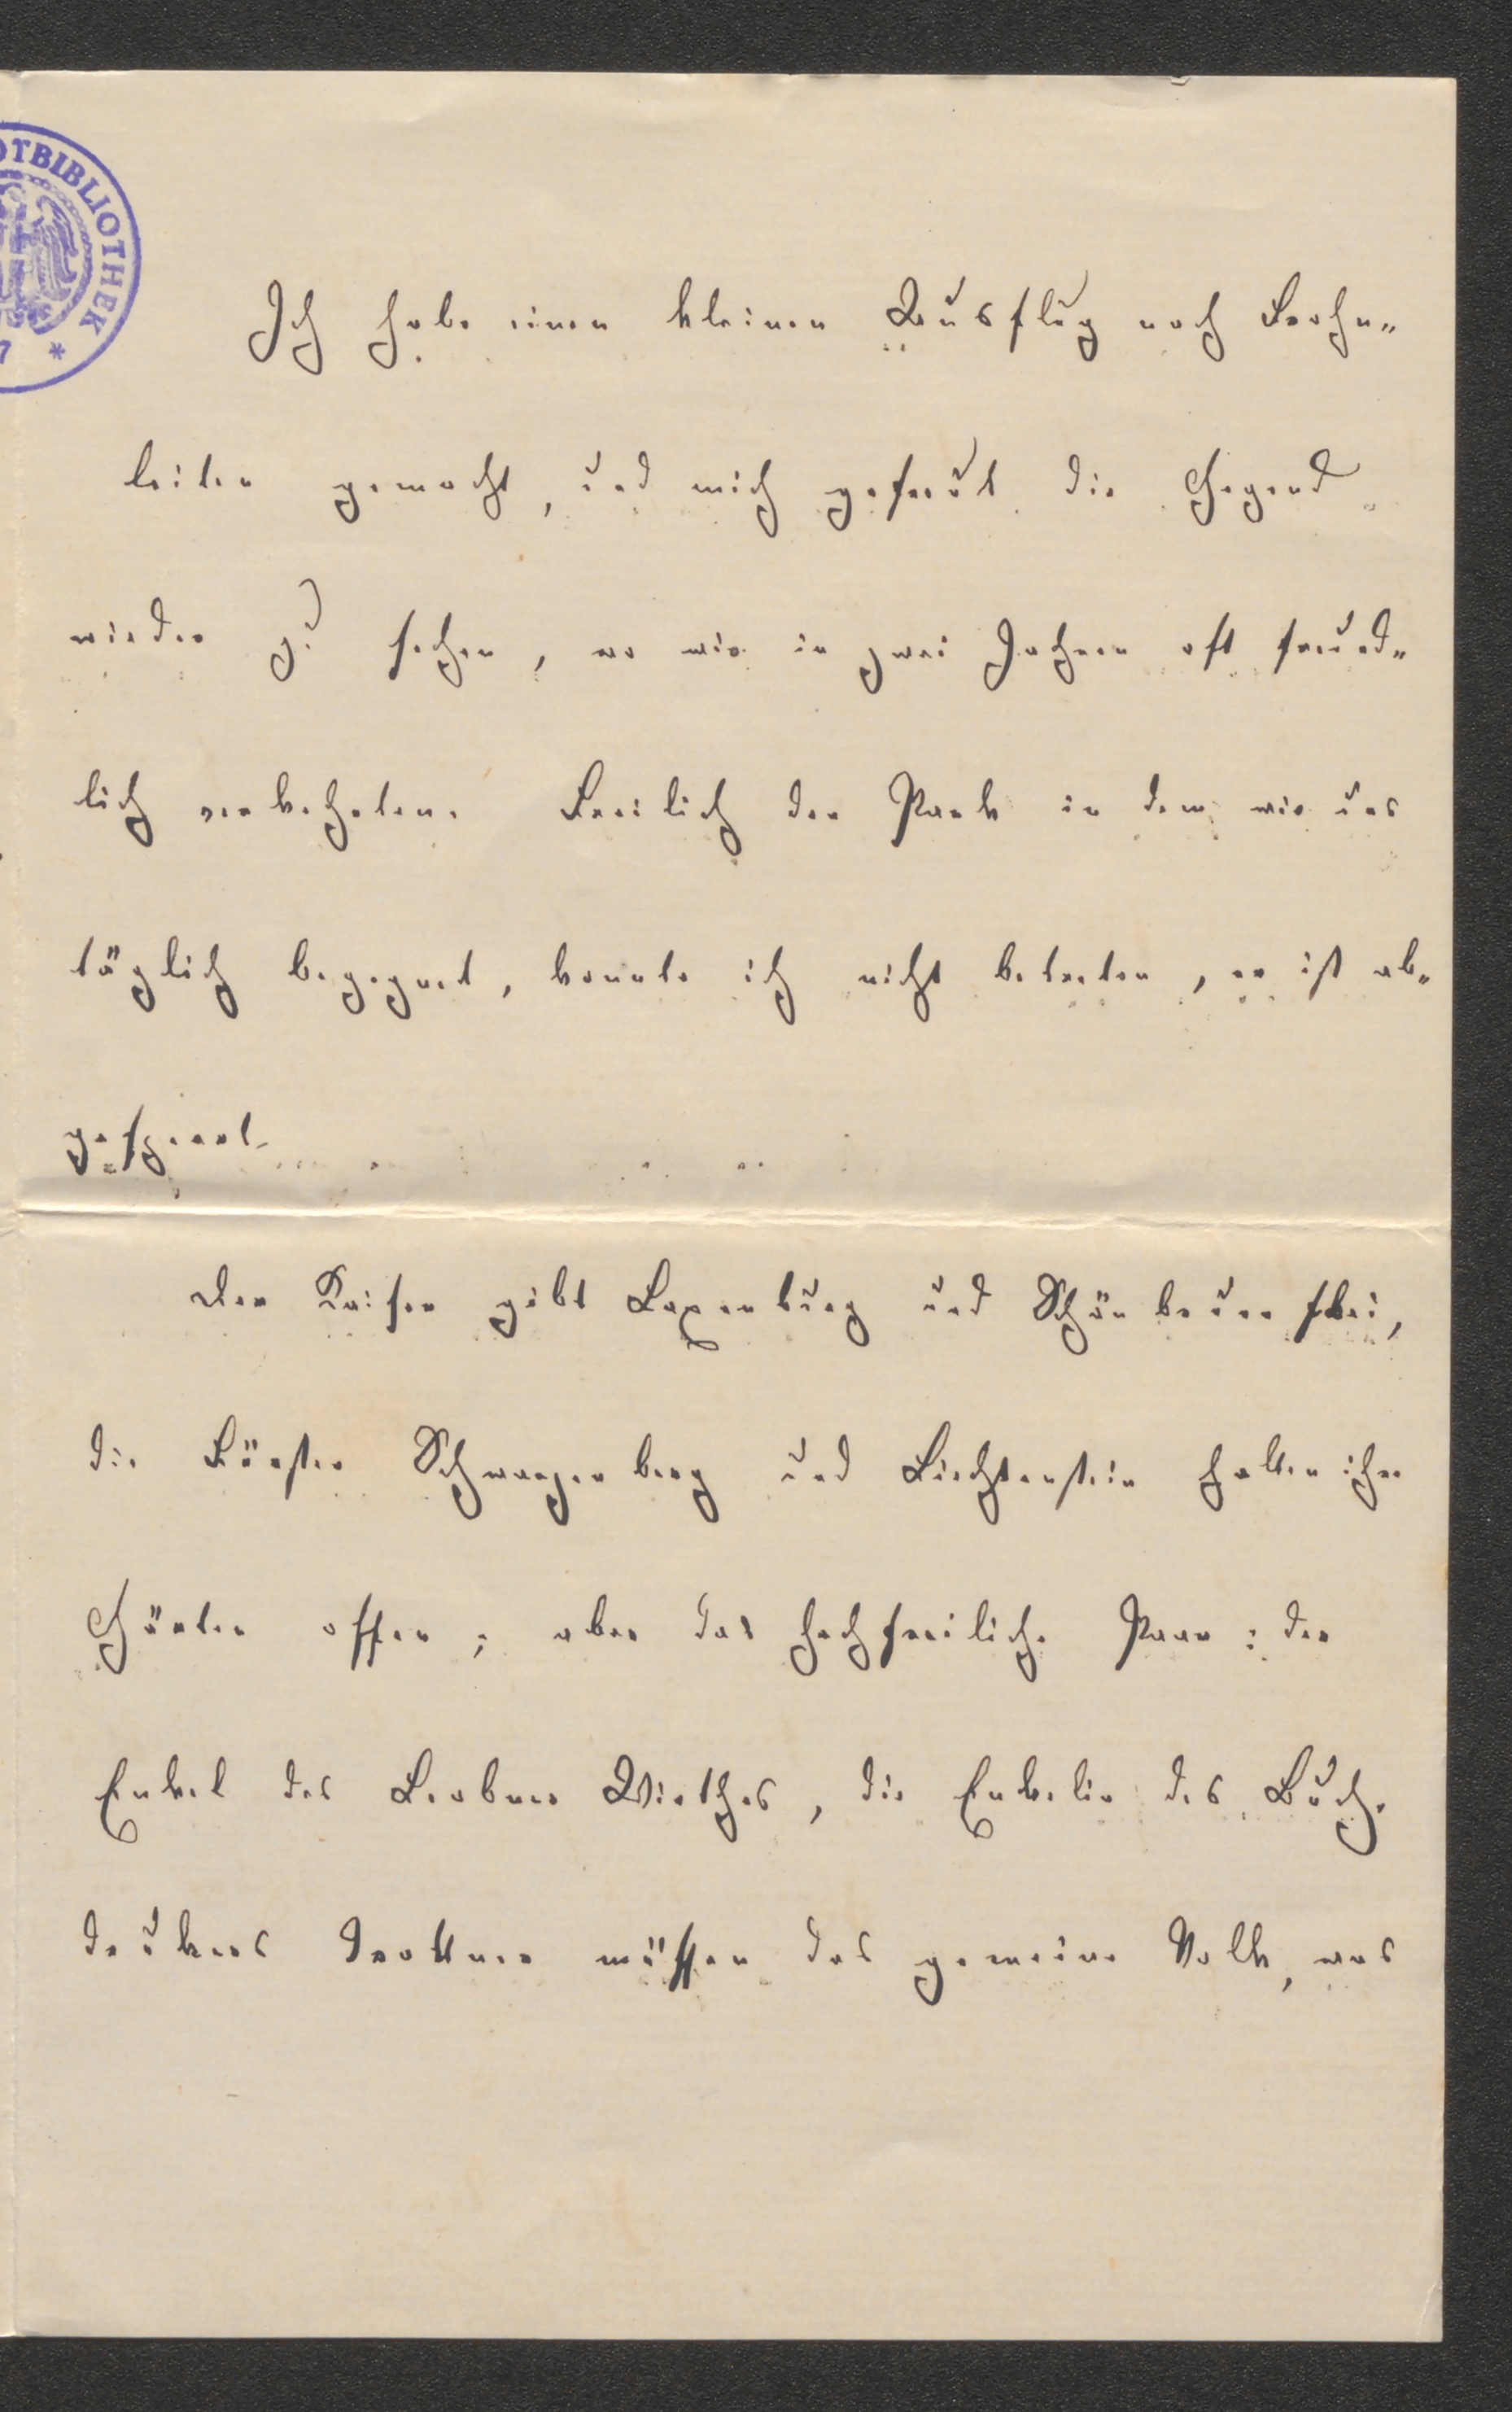 OTBIBLIOTHEK
7 *
Ich habe einen kleinen Ausflug nach Frohn„
leiten gemacht, und mich gefreut die Gegend
wieder zu sehen, wo wir in zwei Jahren oft freund„
lich verkehrten. Freilich der Park in dem wir uns
täglich begegnet, konnte ich nicht betreten, er ist ab„
gesperrt.
Der Kaiser gibt Laxenburg und Schönbrunn frei,
die Fürsten Schwarzenberg und Liechtenstein halten ihre
Gärten offen; aber das hochfreiliche Paar: der
Enkel des Leobner Wirthes, die Enkelin des Buch„
druckers Trattner müssen das gemeine Volk, was